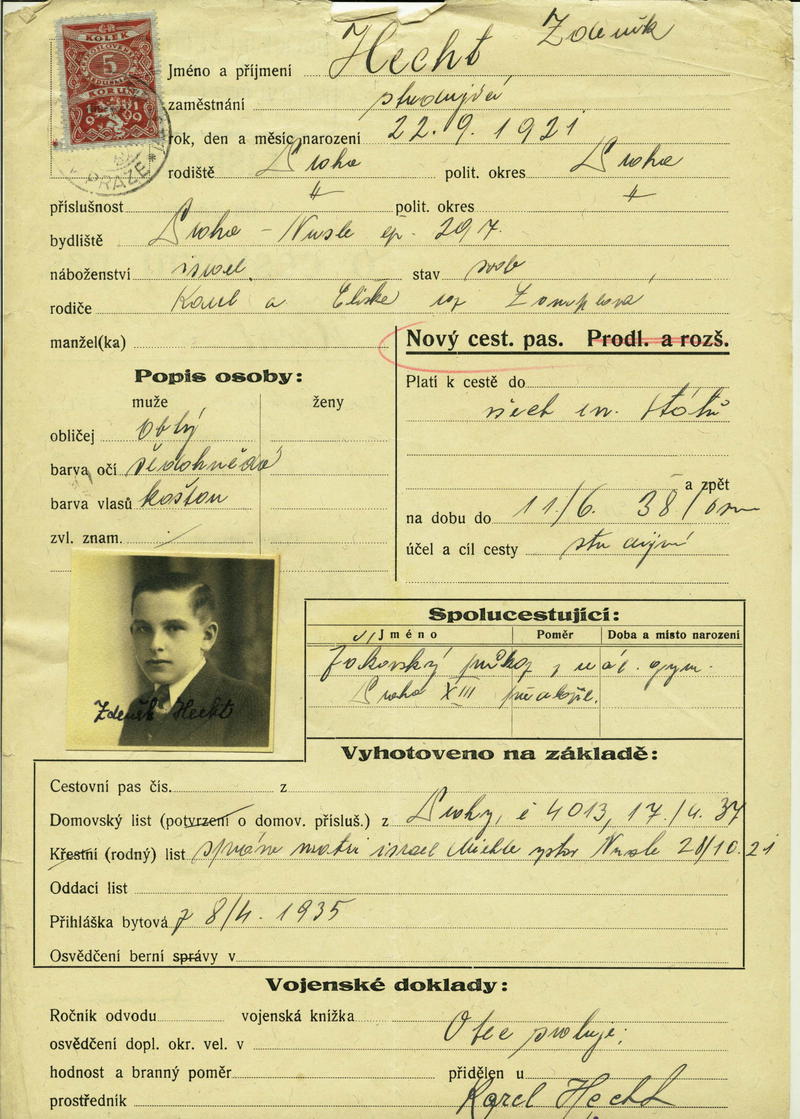 KOLEK
5
KORUN
PRAZE
Jméno a příjmení Hecht Zdeněk
zaměstnání studující
rok, den a měsíc narození 22. 9. 1921
rodiště Praha polit. okres Praha
příslušnost " polit. okres "
bydliště Praha - Nusle čp. 297.
náboženství israel. stav svob
rodiče Karel a Eliška
manžel(ka)
Nový cest. pas. Prodl. a rozš.
Popis osoby:
muže ženy
obličej oblý
barva očí šedohnědé
barva vlasů kaštan
zvl. znam.
Platí k cestě do
všech států
a zpět
na dobu do 11/6. 38
účel a cíl cesty studijní
Zdeněk Hecht
Spolucestující:
Jméno Poměr Doba a místo narození
Praha XIII
Vyhotoveno na základě:
Cestovní pas čís. z
Domovský list (potvrzení o domov. přísluš.) z Prahy, č 4013, 17./4. 37
Křestní (rodný) list israel Nusle 28/10. 21
Oddací list
Přihláška bytová z 8/4. 1935
Osvědčení berní správy v
Vojenské doklady:
Ročník odvodu vojenská knížka
osvědčení dopl. okr. vel. v Otec svoluje:
hodnost a branný poměr přidělen u
prostředník Karel Hecht